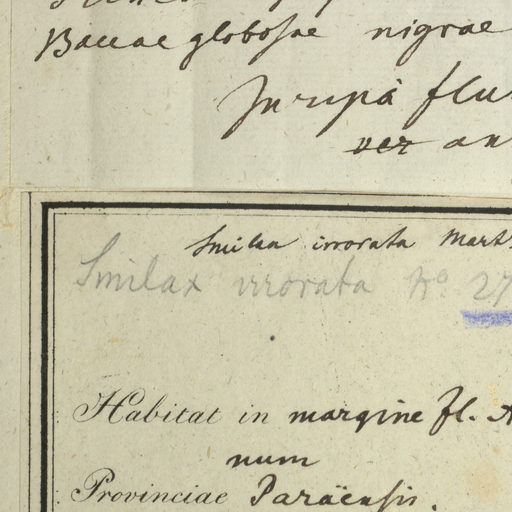 Baccae globosae nigrae
In ripâ flu
ver an
Smilax irrorata Mart.
Smilax irrorata No 27
Habitat in margine fl. A
num
Provinciae Paraënsis.